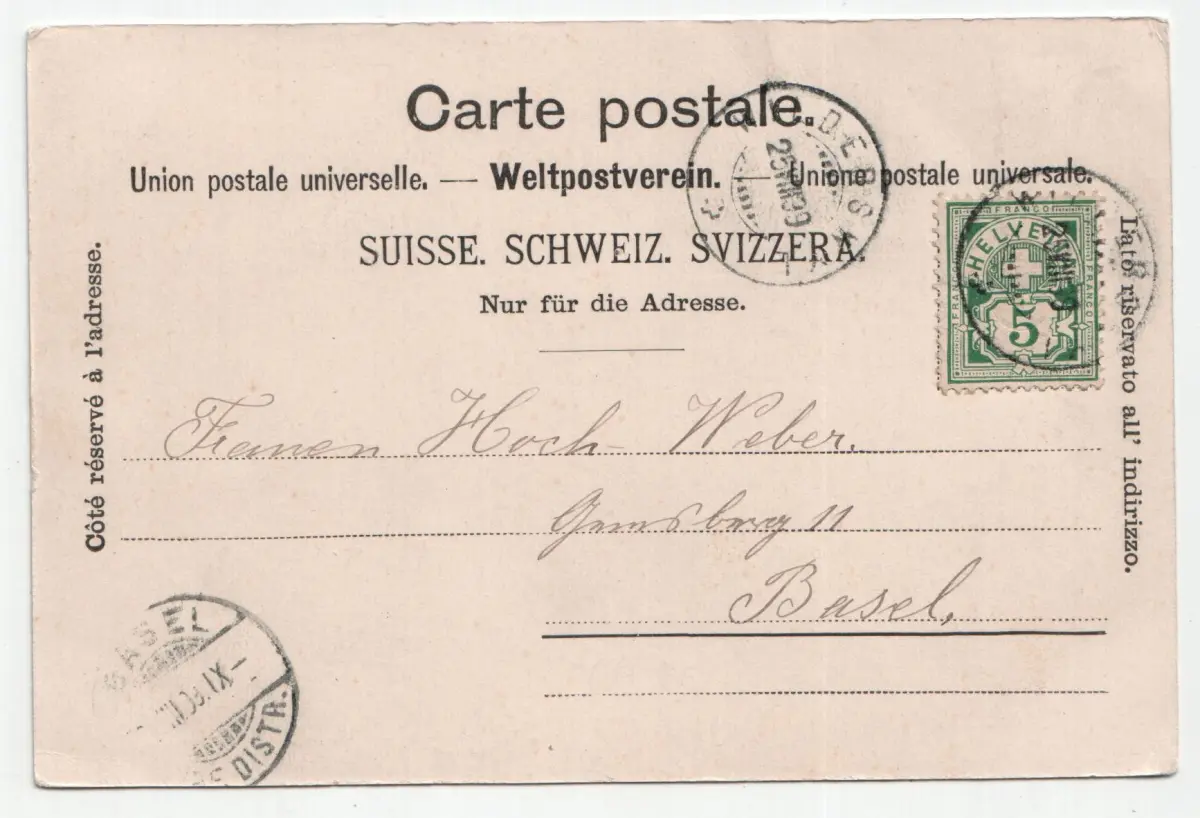 Carte postale.
Union postale universelle. — Weltpostverein. — Unione postale universale.
SUISSE. SCHWEIZ. SVIZZERA.
Nur für die Adresse.
Côté réservé à l'adresse.
Lato riservato all' indirizzo.
FRANCO
HELVETIA
FRANCO
FRANCO
5
Frauen Hoch-Weber.
Gemsberg 11
Basel.
BASEL
XI
DISTR.